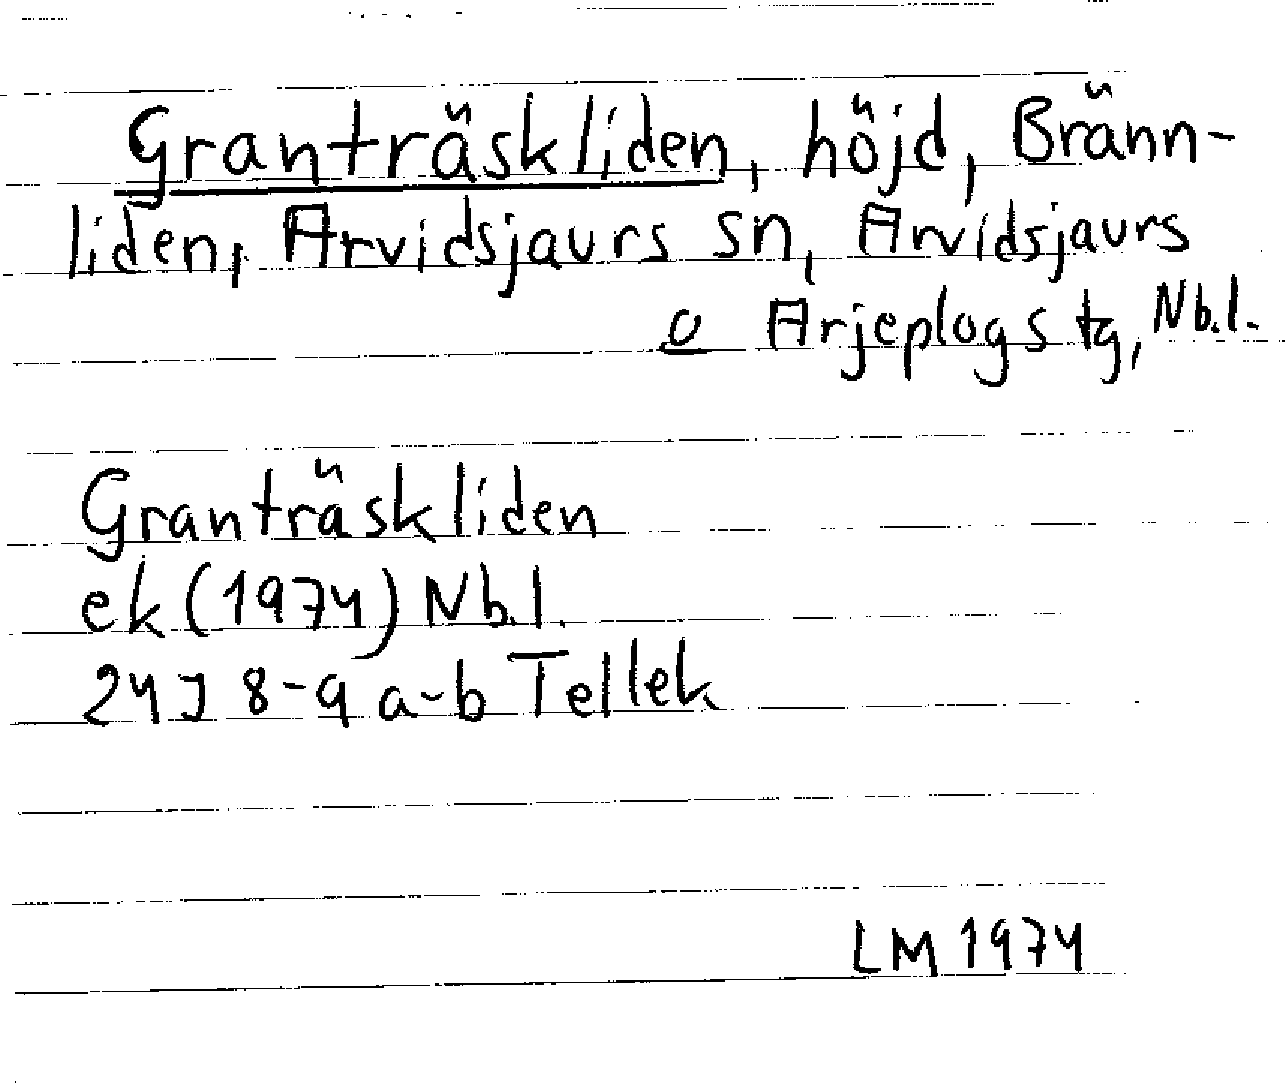 Granträskliden, höjd, Bränn-
liden, Arvidsjaurs sn, Arvidsjaurs
o Arjeplogs tg, Nb.l.
Granträskliden
ek (1974) Nb.l.
24J 8-9 a-b Tellek
LM 1974